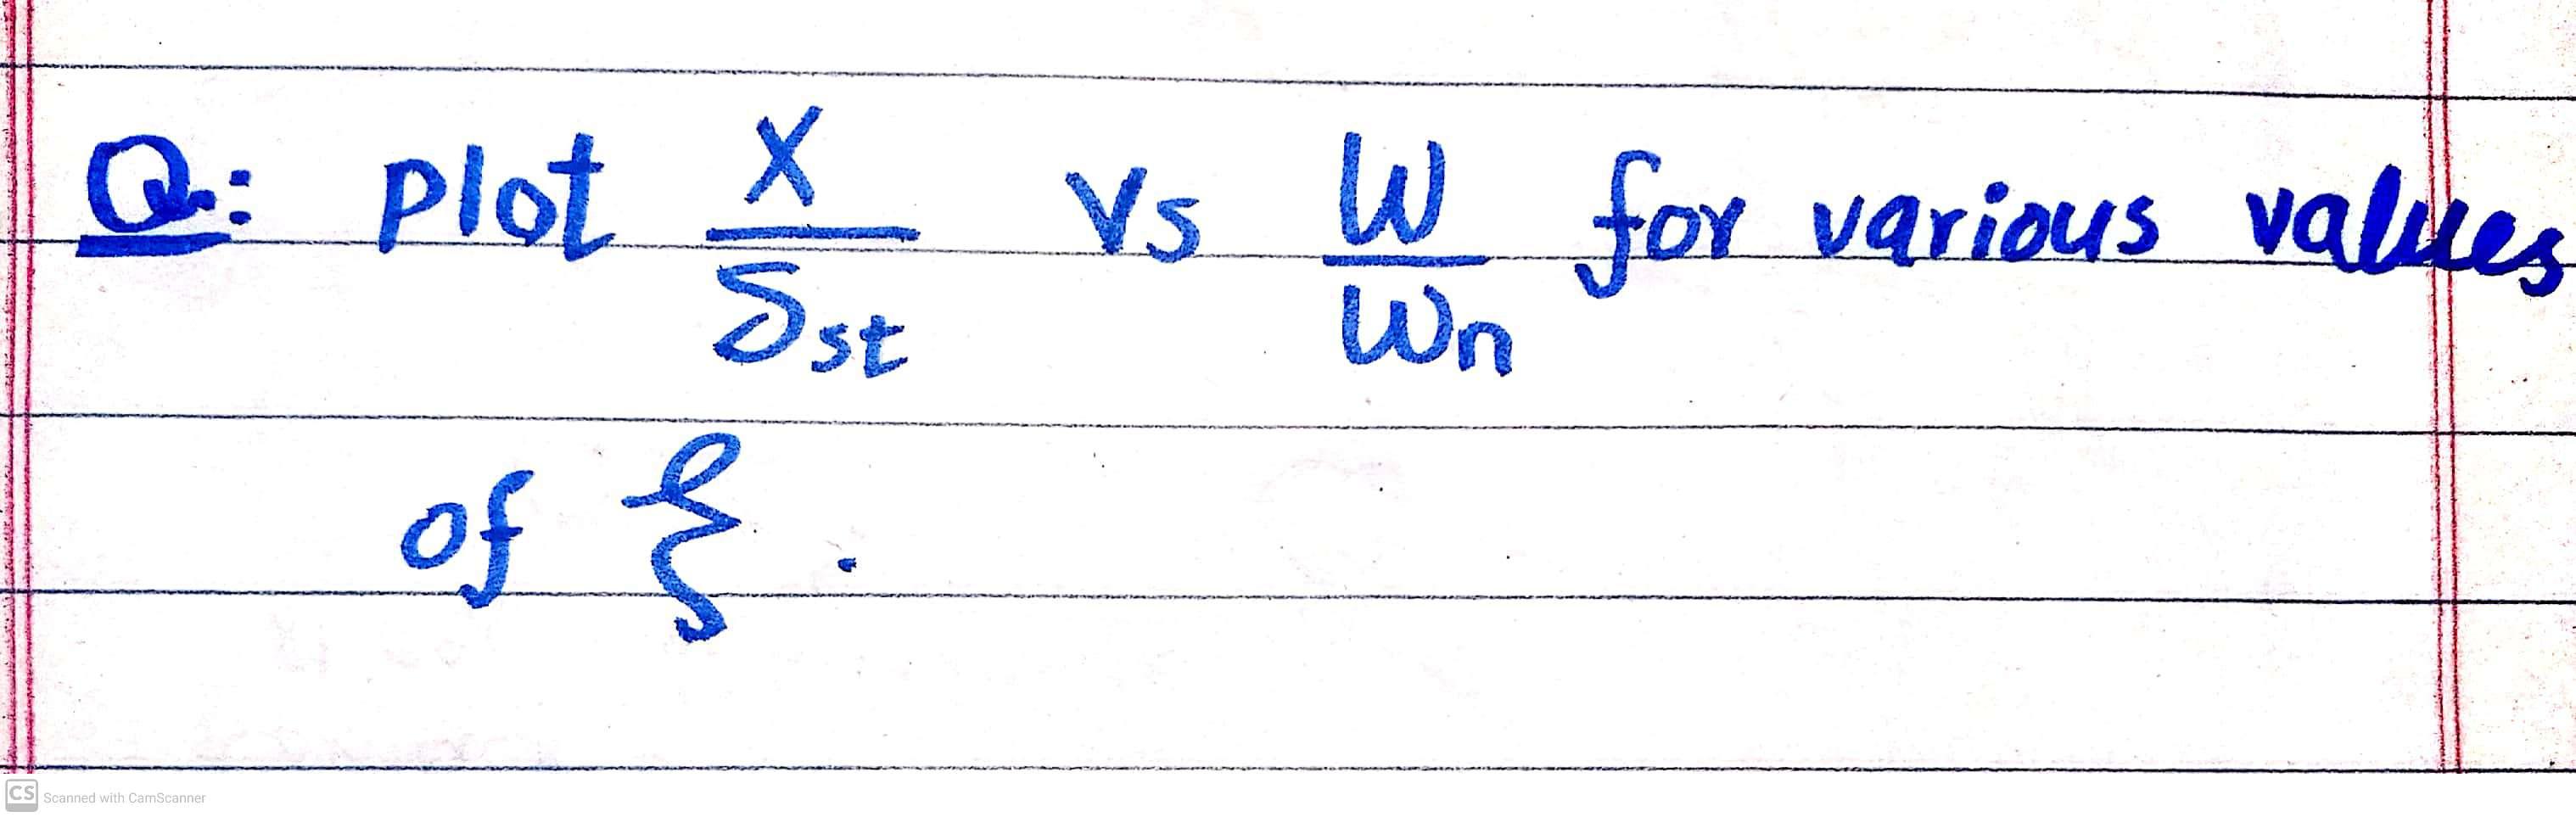 Q: Plot X/δst vs ω/ωn for various values
of ξ .
CS Scanned with CamScanner